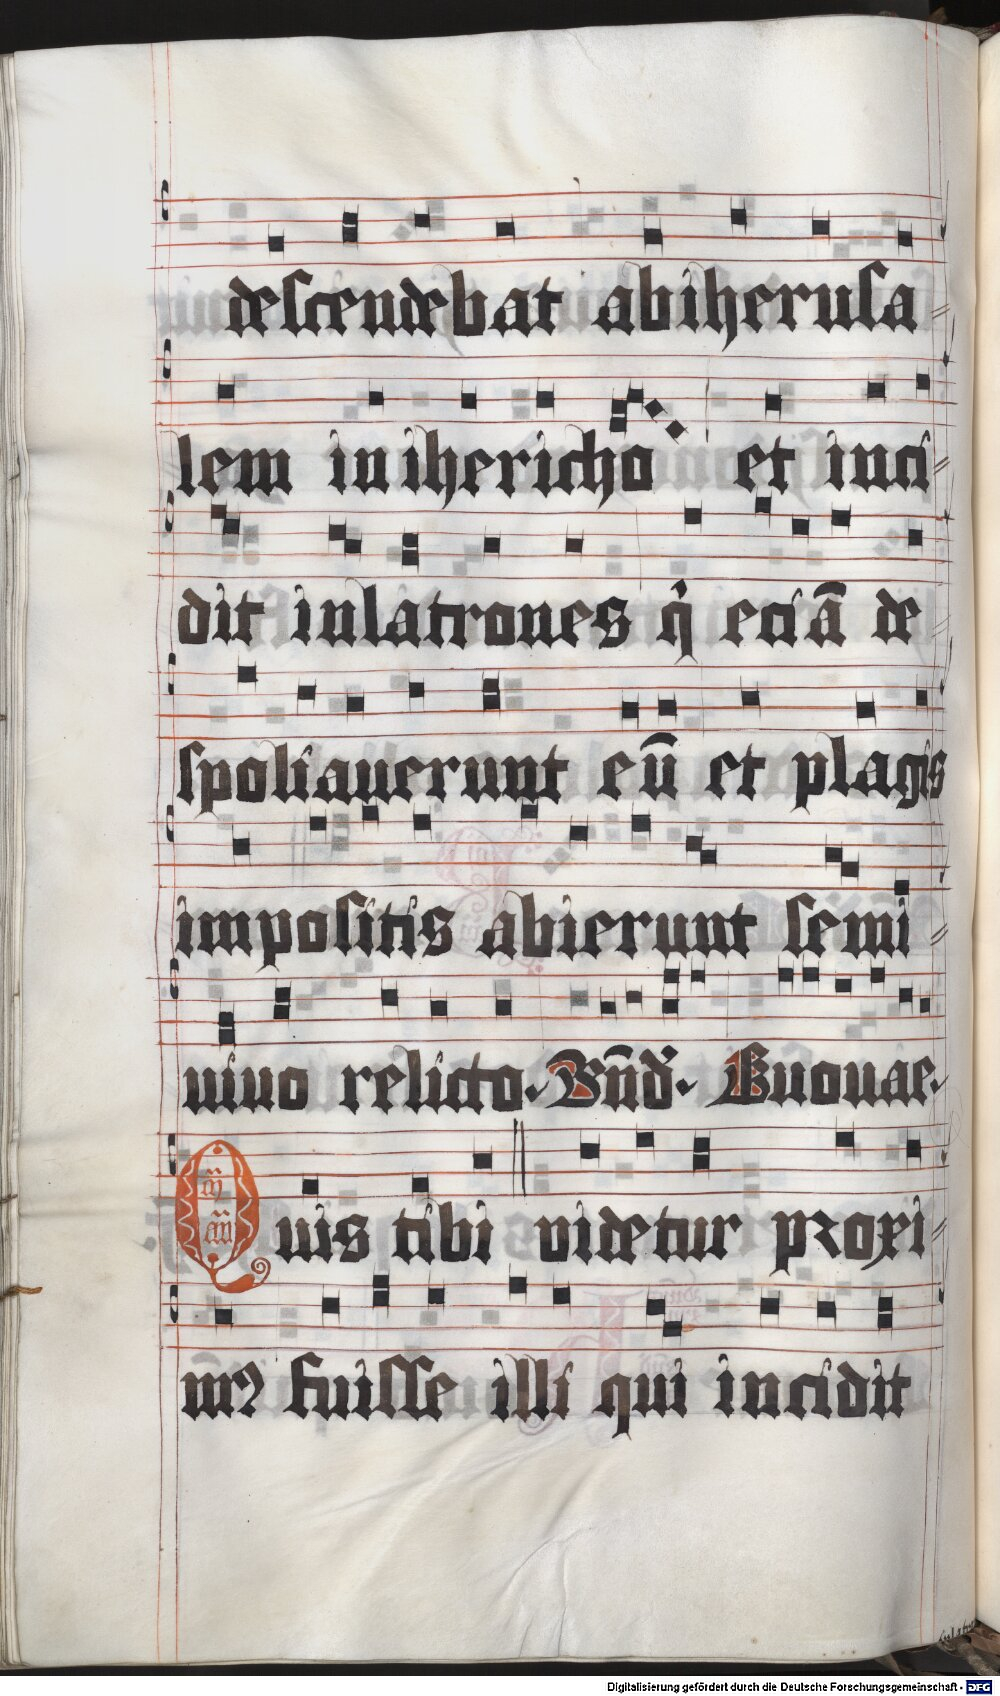 descendebat abiherusa
lem in ihericho et inci⸗
dit inlatrones q̇ eciā de⸗
spoliauerunt eū et plagis
impositis abierunt semi⸗
uiuo relicto. Bn̄d͛. Euouae.
Quis tibi videtur proxi⸗
mꝰ fuisse illi qui incidit
Digitalisierung gefördert durch die Deutsche Forschungsgemeinschaft - DFG